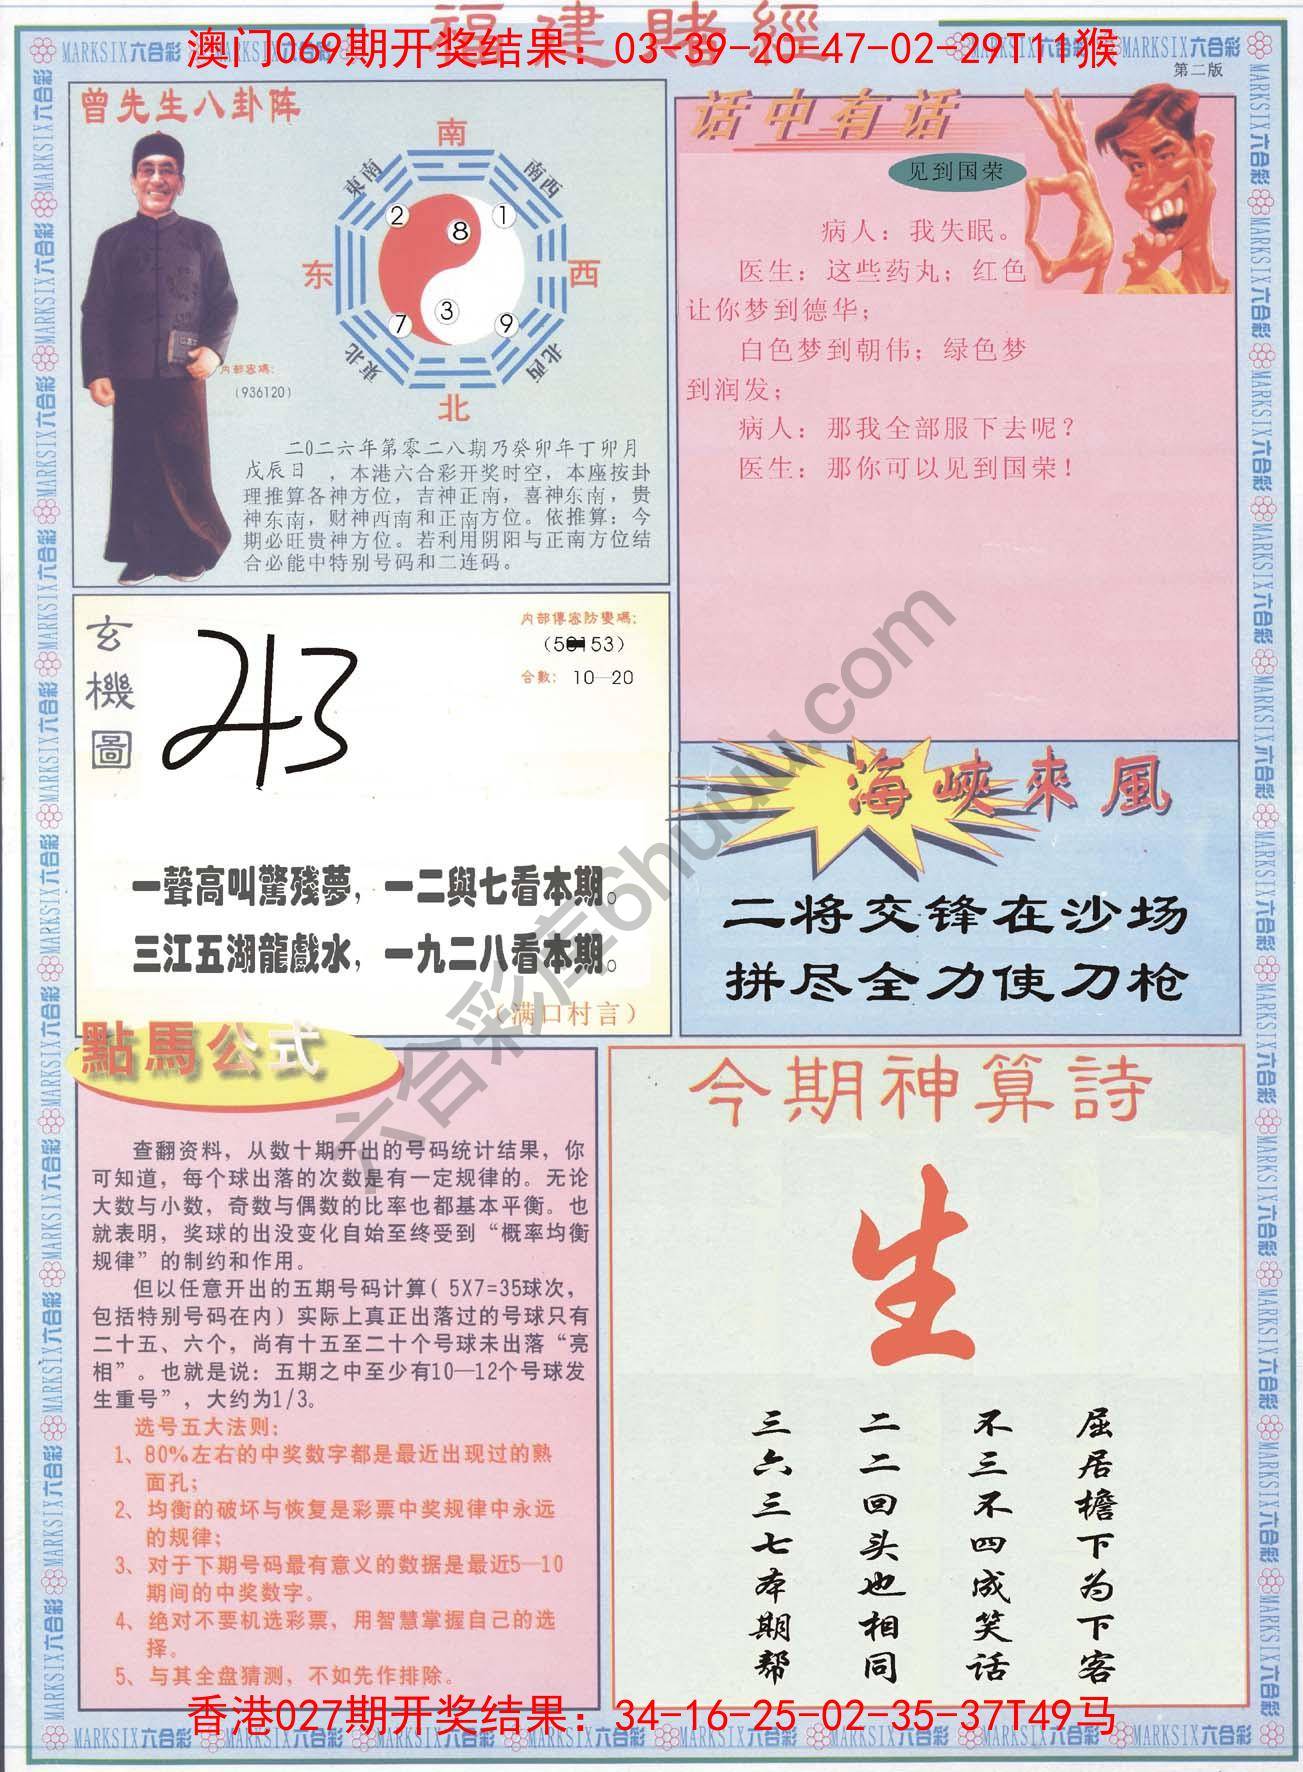 福建賭經
澳门069期开奖结果：03-39-20-47-02-29T11猴
第二版
MARKSIX六合彩
曾先生八卦阵
南
東南
南西
2
1
8
东
西
3
7
9
東北
北西
北
内部密碼：
(936120)
二0二六年第零二八期乃癸卯年丁卯月
戊辰日 ，本港六合彩开奖时空，本座按卦
理推算各神方位，吉神正南，喜神东南，贵
神东南，财神西南和正南方位。依推算：今
期必旺贵神方位。若利用阴阳与正南方位结
合必能中特别号码和二连码。
话中有话
见到国荣
病人：我失眠。
医生：这些药丸；红色
让你梦到德华；
白色梦到朝伟；绿色梦
到润发；
病人：那我全部服下去呢？
医生：那你可以见到国荣！
玄機圖
内部傳密防變碼：
合數： 10—20
一聲高叫驚殘夢，一二與七看本期。
三江五湖龍戲水，一九二八看本期。
（满口村言）
海峽來風
二将交锋在沙场
拼尽全力使刀枪
六合彩库6huuu.com
點馬公式
查翻资料，从数十期开出的号码统计结果，你
可知道，每个球出落的次数是有一定规律的。无论
大数与小数，奇数与偶数的比率也都基本平衡。也
就表明，奖球的出没变化自始至终受到“概率均衡
规律”的制约和作用。
但以任意开出的五期号码计算( 5X7=35球次，
包括特别号码在内）实际上真正出落过的号球只有
二十五、六个，尚有十五至二十个号球未出落“亮
相”。也就是说：五期之中至少有10—12个号球发
生重号”，大约为1/3。
选号五大法则：
1、80%左右的中奖数字都是最近出现过的熟
面孔；
2、均衡的破坏与恢复是彩票中奖规律中永远
的规律；
3、对于下期号码最有意义的数据是最近5—10
期间的中奖数字。
4、绝对不要机选彩票，用智慧掌握自己的选
择。
5、与其全盘猜测，不如先作排除。
今期神算詩
生
屈居檐下为下客
不三不四成笑话
二二回头也相同
三六三七本期帮
香港027期开奖结果：34-16-25-02-35-37T49马
MARKSIX六合彩